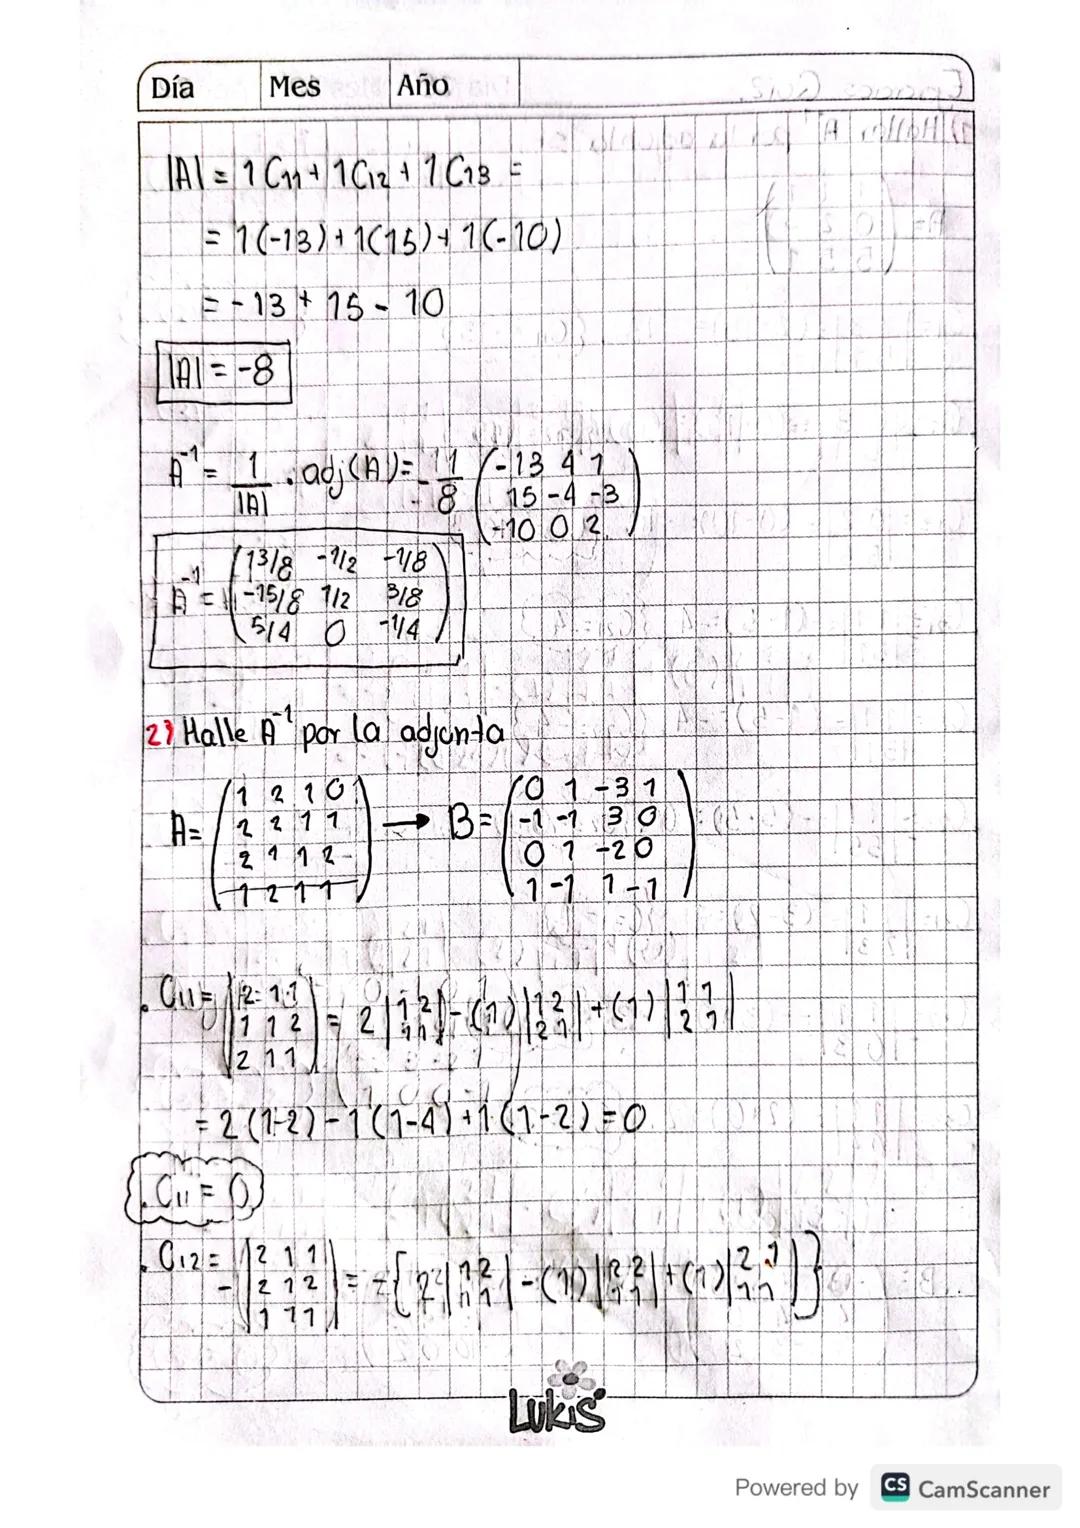 Día Mes Año
|A| = 1 C11 + 1 C12 + 1 C13 =
= 1(-13) + 1(15) + 1(-10)
= -13 + 15 - 10
|A| = -8
A⁻¹ = 1/|A| . adj(A) = -1/8 (-13 4 1
15 -4 -3
-10 0 2)
A⁻¹ = (13/8 -1/2 -1/8
-15/8 1/2 3/8
5/4 0 -1/4)
2) Halle A⁻¹ por la adjunta
A= (1 2 1 0
2 2 1 1
2 1 1 2
1 2 1 1) → B= (0 1 -3 1
-1 -1 3 0
0 1 -2 0
1 -1 1 -1)
. C11 = |2 1 1
1 1 2
2 1 1| = 2 |1 2
1 1| - (1) |1 2
2 1| + (1) |1 1
2 1|
= 2 (1-2) - 1 (1-4) + 1 (1-2) = 0
. C11 = 0
. C12 = - |2 1 1
2 1 2
1 1 1| = - {2 |1 2
1 1| - (1) |2 2
1 1| + (1) |2 1
1 1|}
Lukis
Powered by CS CamScanner